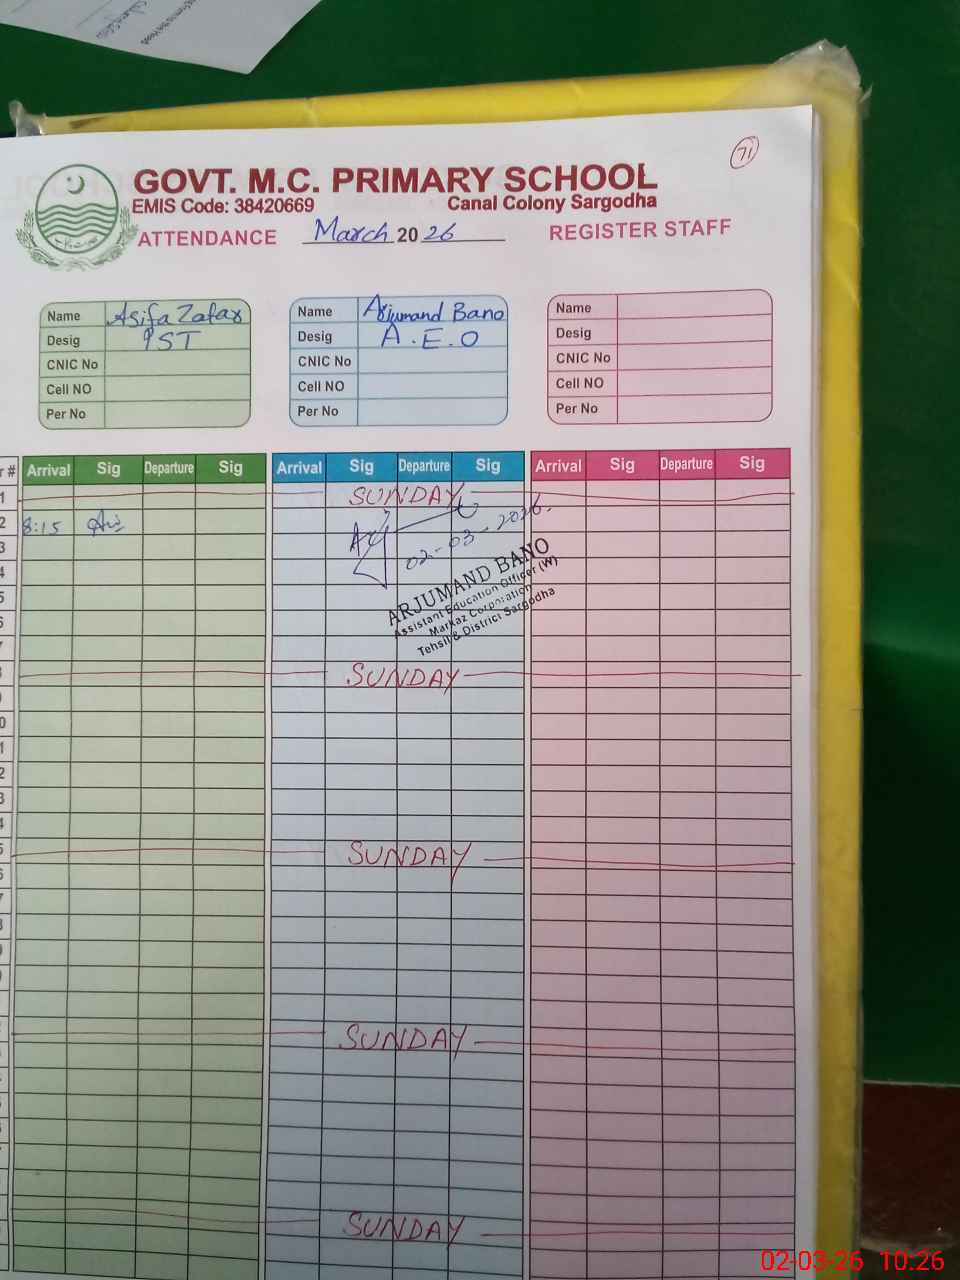 71
GOVT. M.C. PRIMARY SCHOOL
EMIS Code: 38420669 Canal Colony Sargodha
ATTENDANCE March 2026 REGISTER STAFF
Name Asifa Zafar
Desig PST
CNIC No
Cell NO
Per No
Name Arjumand Bano
Desig A.E.O
CNIC No
Cell NO
Per No
Name
Desig
CNIC No
Cell NO
Per No
r # Arrival Sig Departure Sig Arrival Sig Departure Sig Arrival Sig Departure Sig
1 SUNDAY
2 8:15
02-03-2026.
3
4
5
6
7
ARJUMAND BANO
Assistant Education Officer (W)
Markaz Corporation
Tehsil & District Sargodha
SUNDAY
0
1
2
3
4
5 SUNDAY
6
7
SUNDAY
SUNDAY
02-03-26 10:26